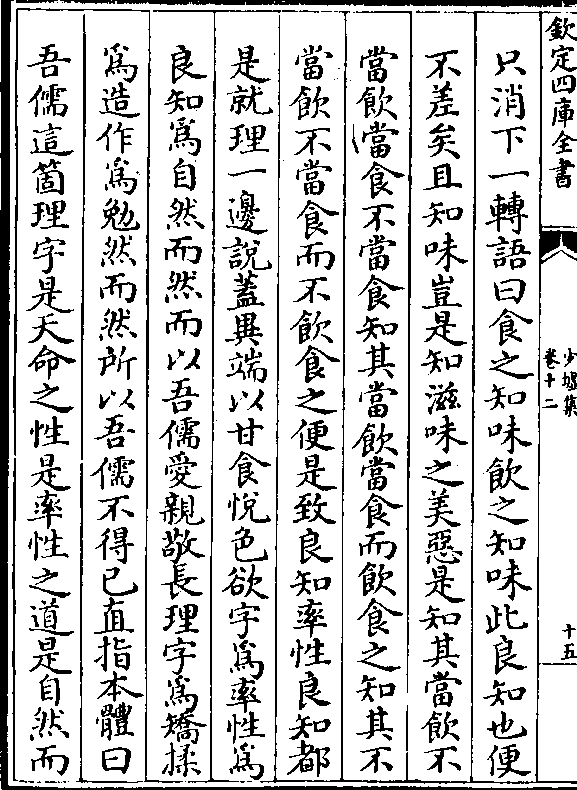 欽定四庫全書
少墟集
卷十二
十五
只消下一轉語曰食之知味飲之知味此良知也便
不差矣且知味豈是知滋味之美惡是知其當飲不
當飲當食不當食知其當飲當食而飲食之知其不
當飲不當食而不飲食之便是致良知率性良知都
是就理一邊說蓋異端以甘食悅色欲字為率性為
良知為自然而然而以吾儒愛親敬長理字為矯揉
為造作為勉然而然所以吾儒不得已直指本體曰
吾儒這箇理字是天命之性是率性之道是自然而